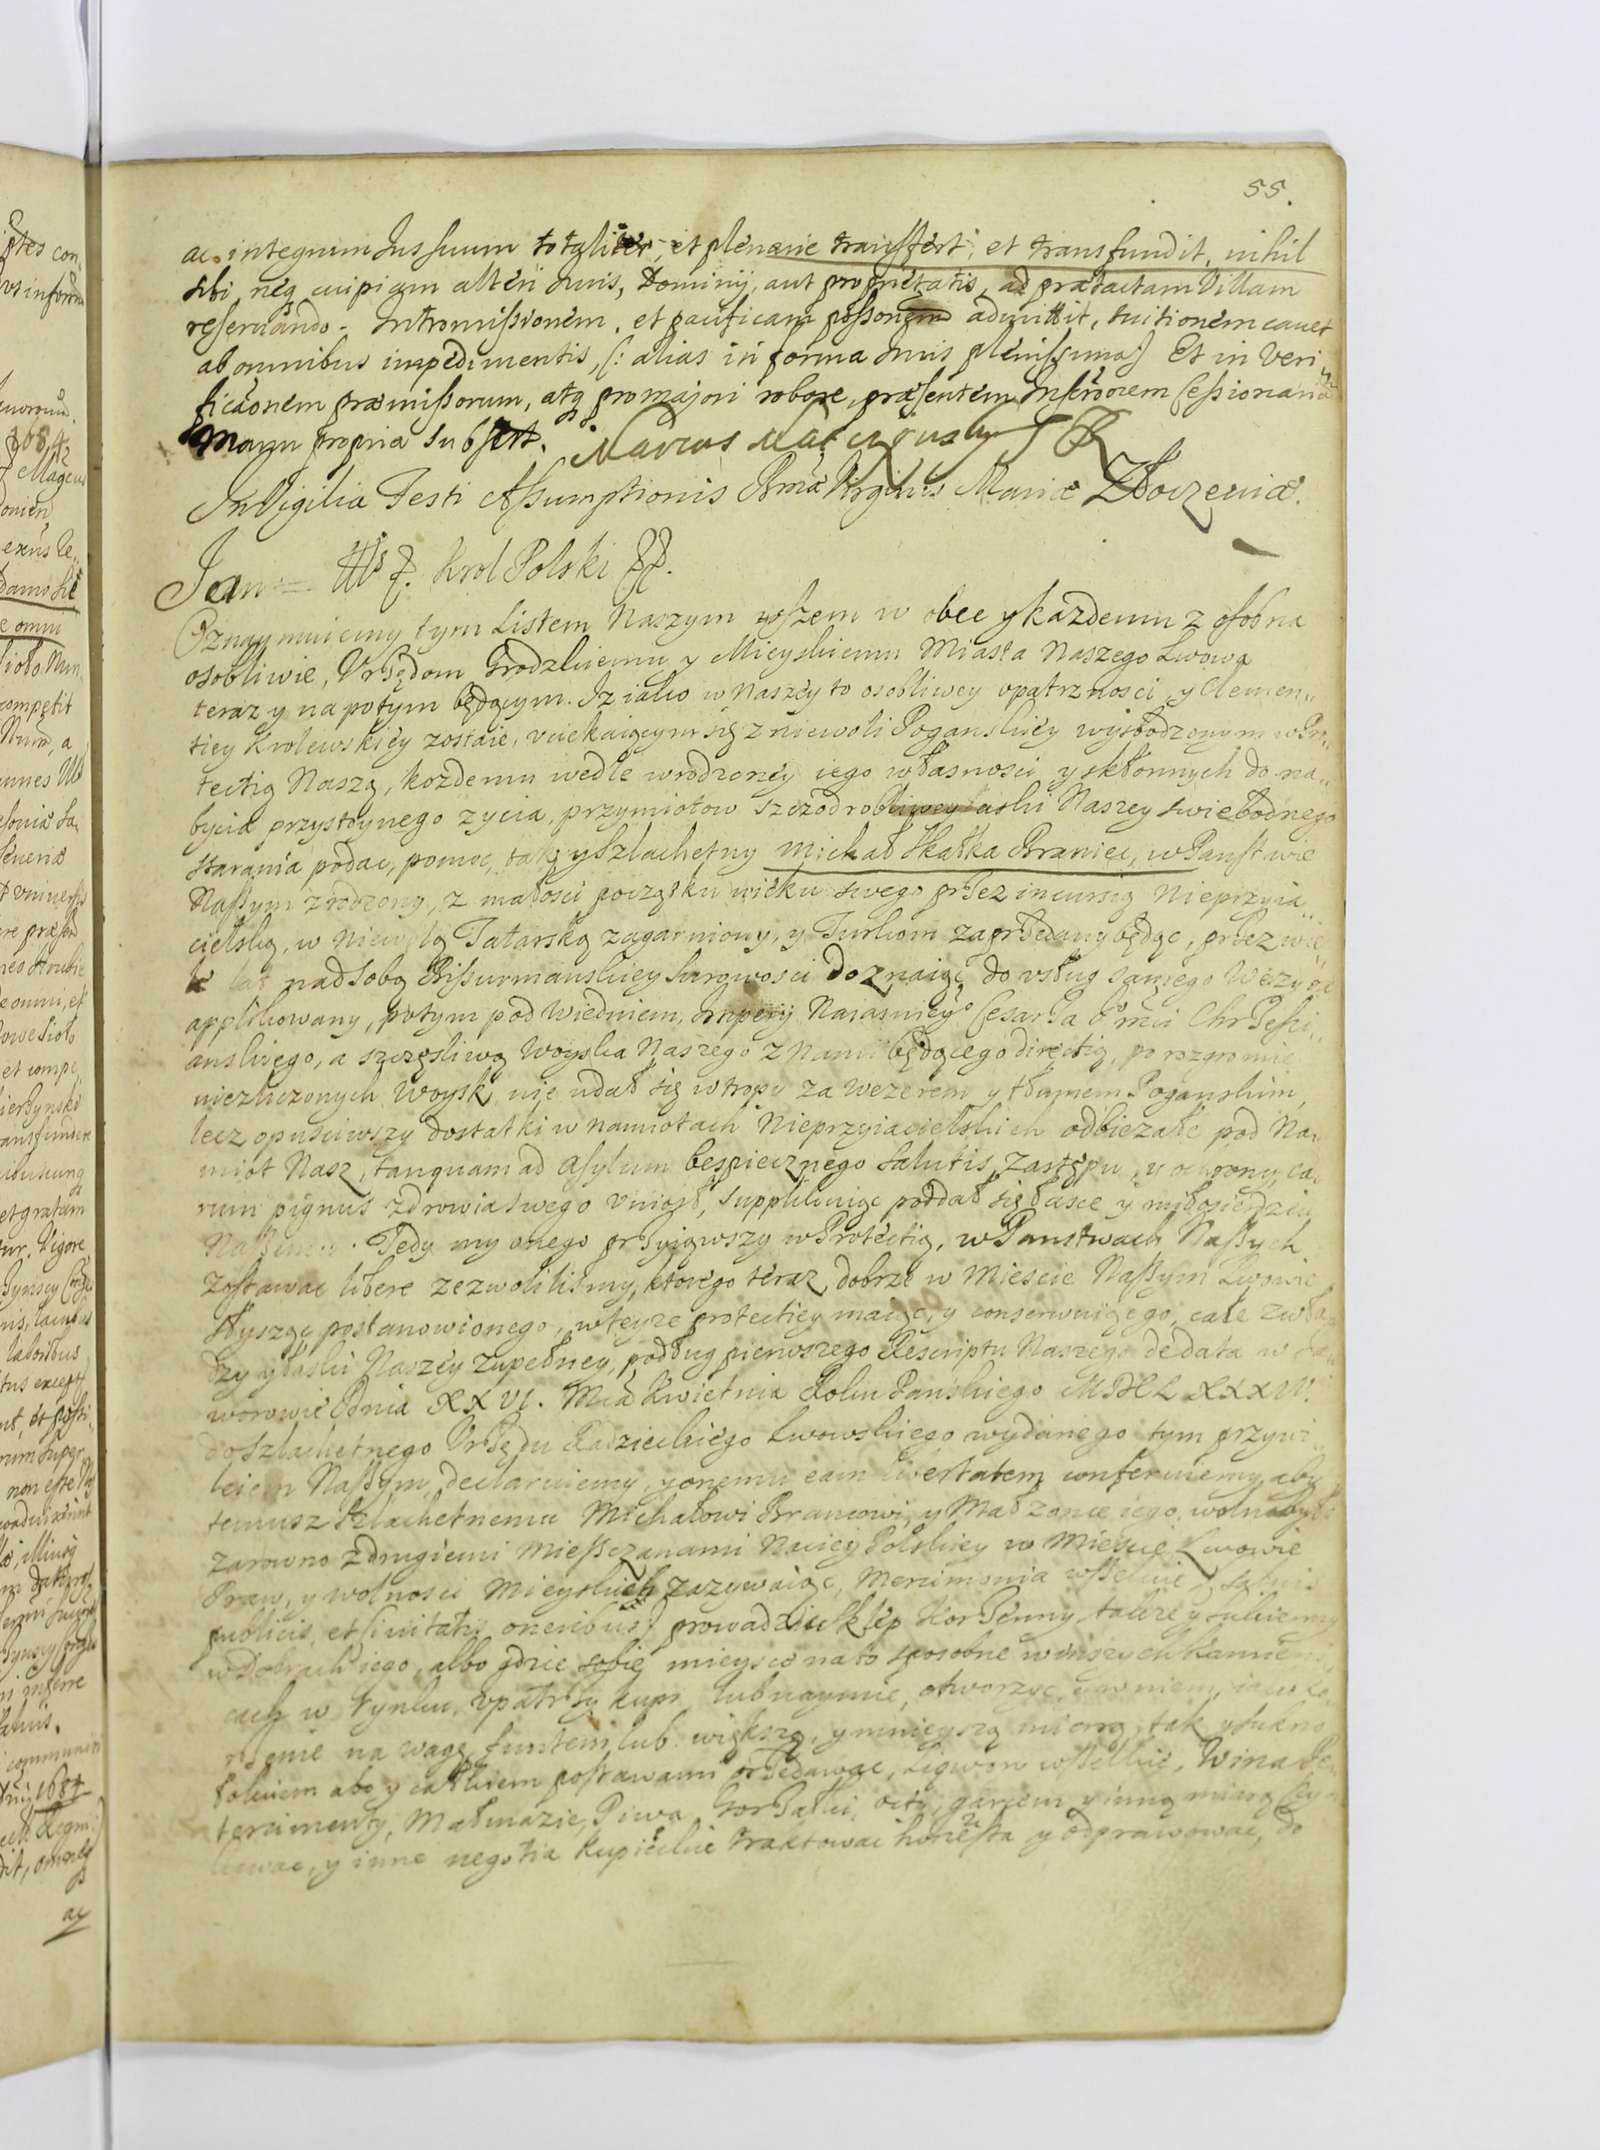 55.
ac integrum Jus suum totaliter, et plenarie transfert, et transfundit, nihil
sibi neq cuipiam alteri Juris, Dominij, aut proprietatis, ad praetactam Villam
reservando. Intromissionem, et pacificam possonem admittit, tuitionem cavet
ab omnibus impedimentis, (: alias in forma Juris plenissima :) Et in Veri
ficaonem praemissorum, atq pro majori robore, praesentem Inscrionem Cessionaria
Manu propria Subsct.
In Vigilia Festi Assumptionis Bmae Virginis Mariae Złoczeviae.
Jan III Krol Polski
Oznaymuiemy tym Listem Naszym wszem w obec y kazdemu z osobna
osobliwie, Vrzędom Grodzkiemu y Mieyskiemu Miasta Naszego Lwowa
teraz y na potym będącym. Iz iako w Naszey to osobliwey opatrznosci, y Clemen
tiey Krolewskiey zostaie, vciekaiącym się z niewoli Poganskiey wyswobodzonym w Pro
tectią Naszą, kozdemu wedle wrodzoney iego własnosci y skłonnych do na
bycia przystoynego zycia, przymiotow szczodrobliwey łaski Naszey swiebodnego
starania podac, pomoc, tak y Szlachetny Michał Skałka Braniec, w Panstwie
Naszym zrodzony, z małosci początku wieku swego przez incursią Nieprzyia
cielską, w Niewolą Tatarską zagarniony, y Turkom zaprzedany będąc, przez wie
le lat nad sobą Bissurmanskiey surowosci doznaiąc, do vsług samego Wezyra
applikowany, potym pod Wiedniem, Imperij Naiasnieyo Cesarza o mci Chrzesci
anskiego, a szczęsliwą Woyska Naszego z Nami będącego directią, po rozgromie
niezliczonych Woysk, nie udał się w tropy za Wezerem y tłumem Poganskim,
lecz opusciwszy dostatki w namiotach Nieprzyiacielskich odbiezałe pod Na
miot Nasz, tanquam ad asylum bespiecznego salutis zastępu, y obrony, ca
rum pignus zdrowia swego vniosł, supplikuiąc poddał się łasce y miłosierdziu
Naszemu. Tedy my onego przyiąwszy w Protectią, w Panstwach Naszych
zostawac libere zezwolilismy, ktorego teraz dobrze w Miescie Naszym Lwowie
słysząc postanowionego, w teyze protectiey maiąc, y conserwuiąc ego, cale z wła
dzy y łaski Naszey zupełney, podług pierwszego Rescriptu Naszego de data w Ja
worowie Dnia XXVI. Mca Kwietnia Roku Panskiego MDCLXXXIV.
do Szlachetnego Vrzędu Radzieckiego Lwowskiego wydanego tym przywi
leiem Naszym, declaruiemy, y onemu eam libertatem conferuiemy, aby
temusz Szlachetnemu Michałowi Brancowi, y Małzonce iego, wolno było
zarowno z drugiemi Mieszczanami Naciey Polskiey w Miescie Lwowie
Praw, y wolnosci Mieyskich zazywaiąc, Mercimonia wszelkie
publicis, et Civitatis oneribus) prowadzic Sklep Korzenny, takze y sukienny
w Dobrach iego, albo gdzie sobie mieysce na to sposobne w inszych Kamieni
cach w Rynku, vpatrzy kupi, lub naymie, otworzyc, y w niem, iako Ko
rzenie na wagę funtem lub większą, y mnieyszą miarą, tak y sukno
łokciem abo y całkiem postawami przedawac, Liqwory wszelkie, Wina Pe
tercimenty, Małmazie, Piwa, Gorzałki, octy, garcem y inną miarą szyn
kowac, y inne negotia kupieckie traktowac honesta y odprawowac, do